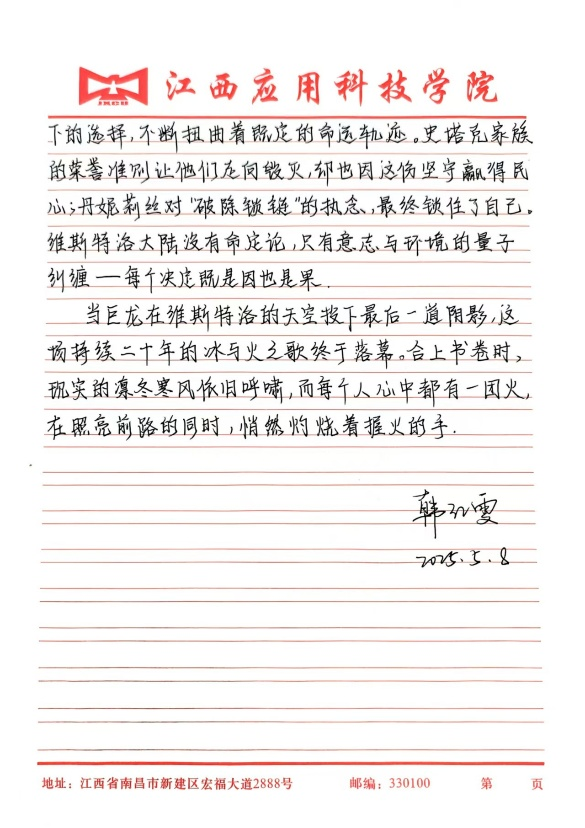 江西应用科技学院
下的选择,不断扭曲着既定的命运轨迹。史塔克家族
的荣誉准则让他们走向毁灭,却也因这份坚守赢得民
心;丹妮莉丝对“破除锁链”的执念,最终锁住了自己。
维斯特洛大陆没有命定论,只有意志与环境的量子
纠缠——每个决定既是因也是果.
当巨龙在维斯特洛的天空投下最后一道阴影,这
场持续二十年的冰与火之歌终于落幕。合上书卷时,
现实的凛冬寒风依旧呼啸,而每个人心中都有一团火,
在照亮前路的同时,悄然灼烧着握火的手.
韩红雯
2025.5.8
地址:江西省南昌市新建区宏福大道2888号 邮编:330100 第 页